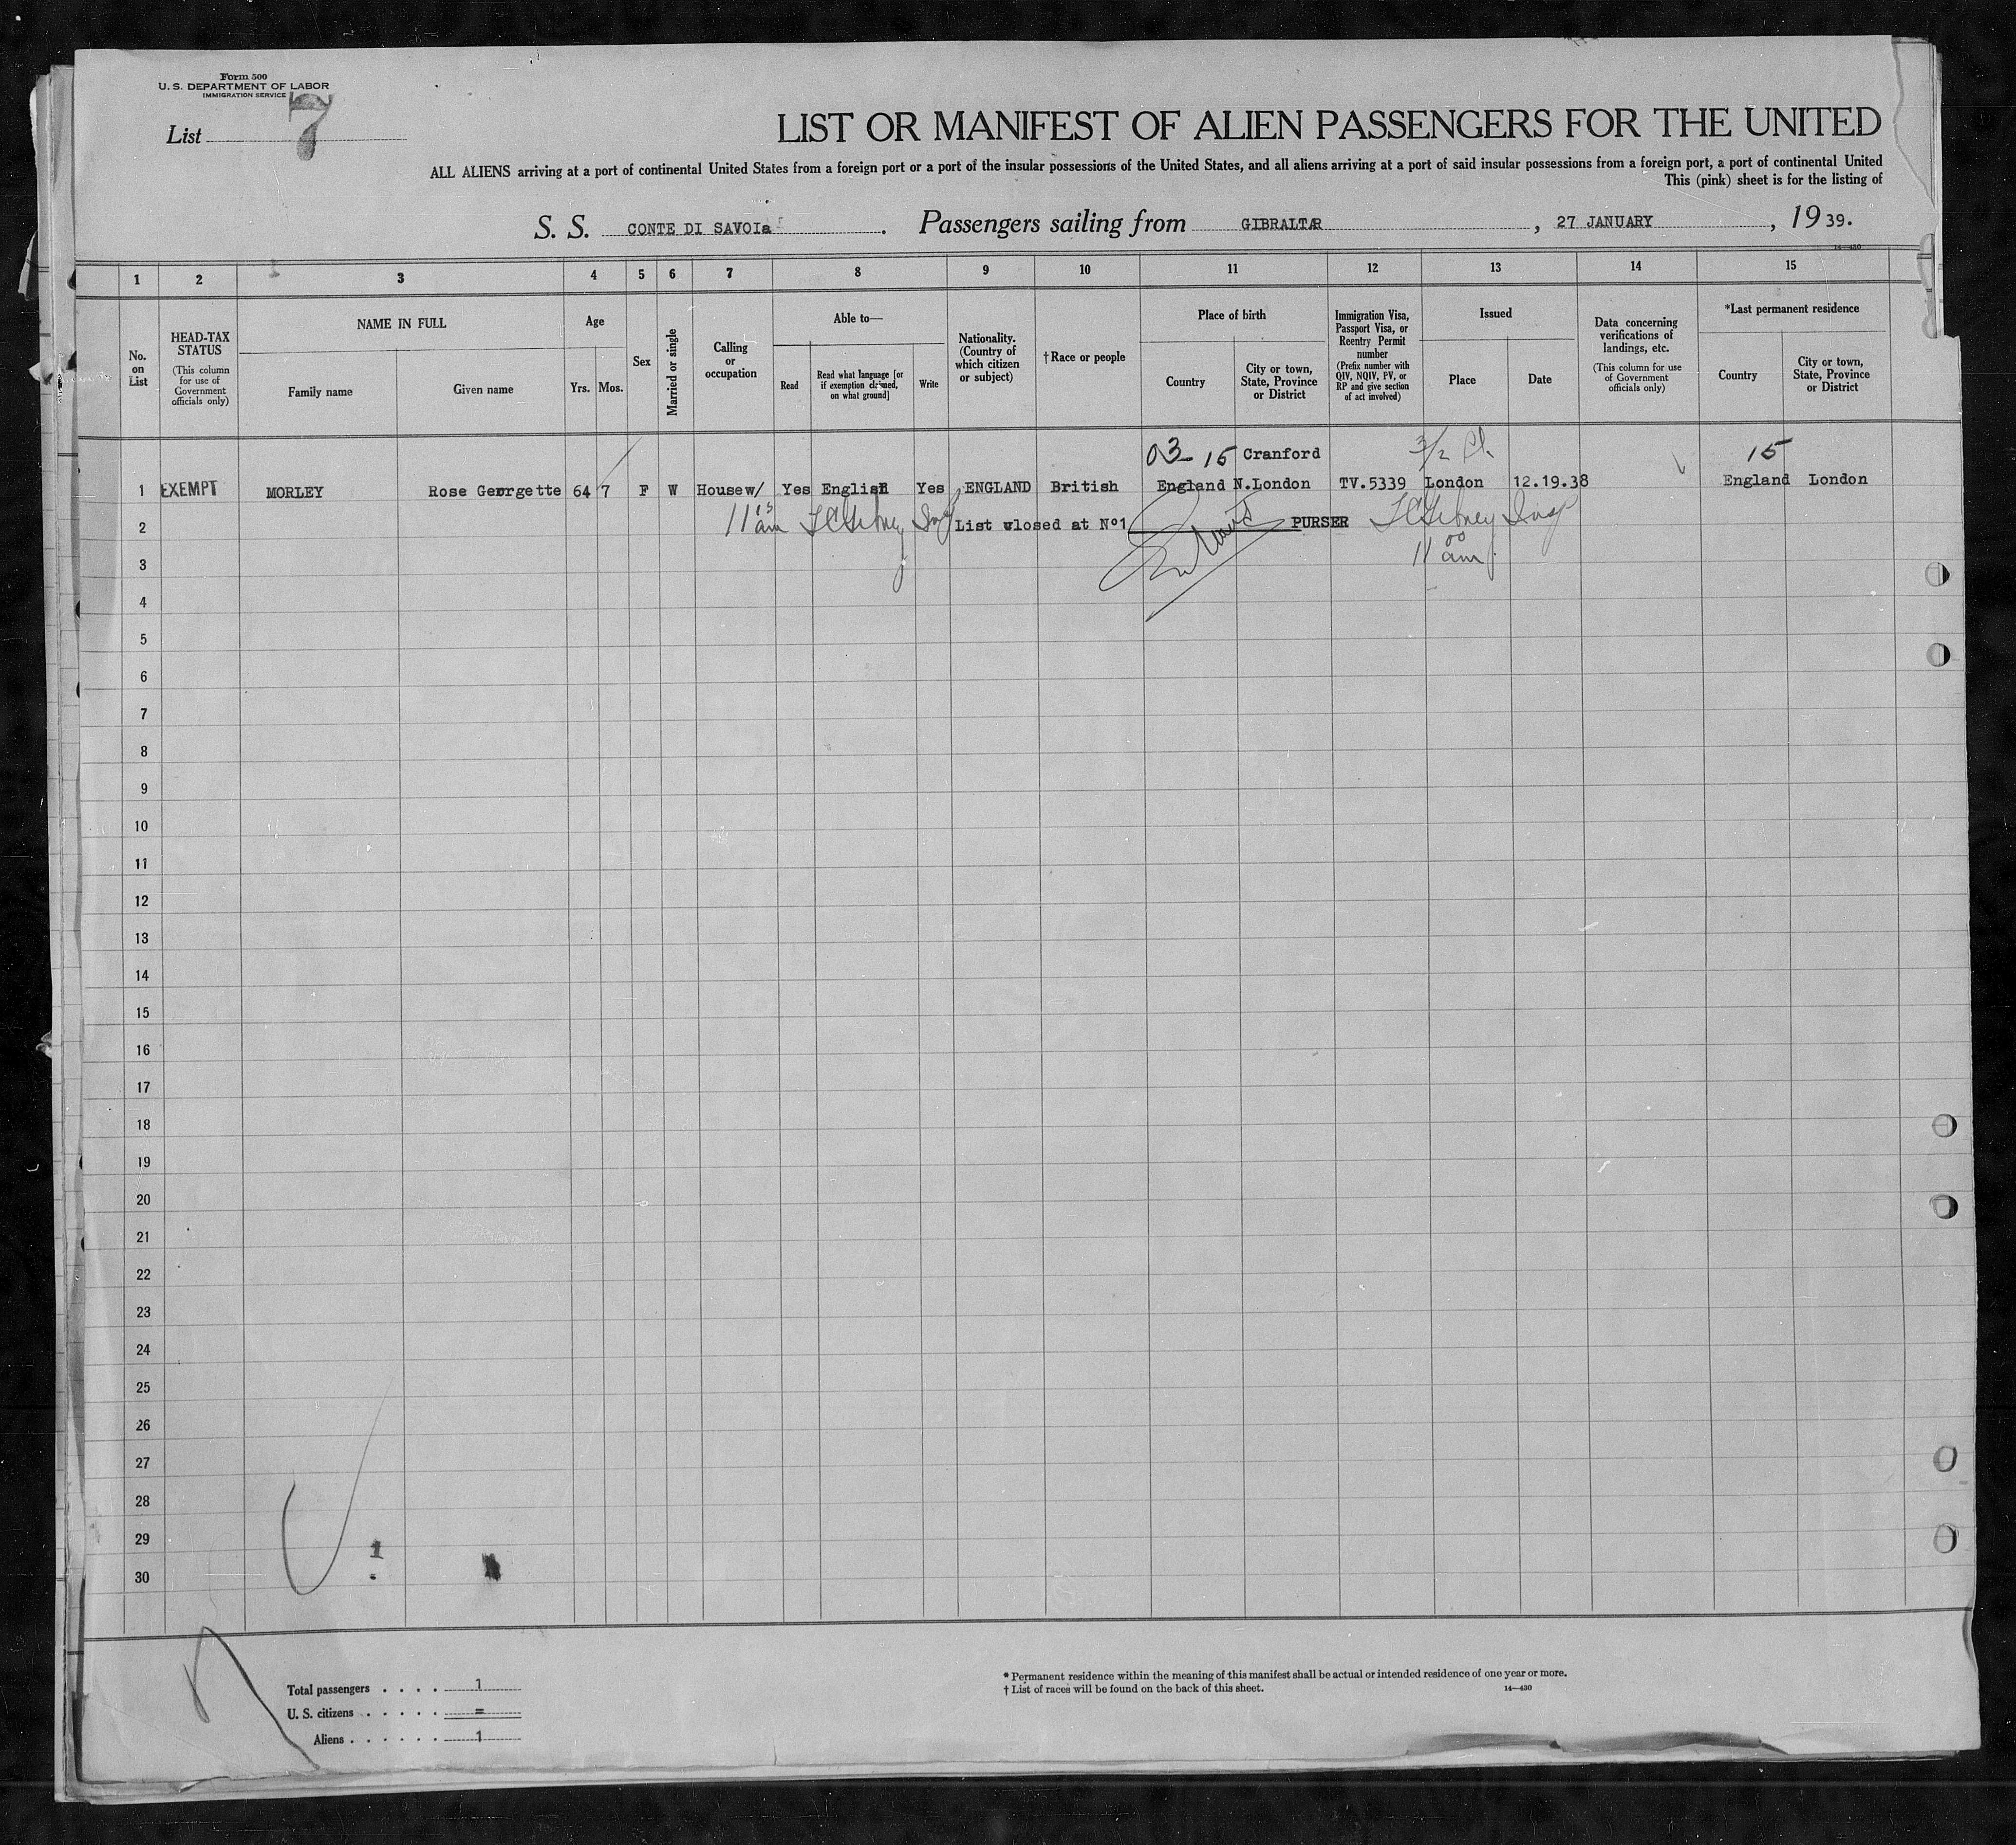 Form 500
U. S. DEPARTMENT OF LABOR
IMMIGRATION SERVICE
List 7
LIST OR MANIFEST OF ALIEN PASSENGERS FOR THE UNITED
ALL ALIENS arriving at a port of continental United States from a foreign port or a port of the insular possessions of the United States, and all aliens arriving at a port of said insular possessions from a foreign port, a port of continental United
This (pink) sheet is for the listing of
S. S. CONTE DI SAVOIa . Passengers sailing from GIBRALTAR , 27 JANUARY , 19 39.
14—430
1 2 3 4 5 6 7 8 9 10 11 12 13 14 15
No. on List
HEAD-TAX STATUS (This column for use of Government officials only)
NAME IN FULL
Family name
Given name
Age
Yrs. Mos.
Sex
Married or single
Calling or occupation
Able to—
Read
Read what language [or if exemption claimed, on what ground]
Write
Nationality. (Country of which citizen or subject)
†Race or people
Place of birth
Country
City or town, State, Province or District
Immigration Visa, Passport Visa, or Reentry Permit number (Prefix number with QIV, NQIV, PV, or RP and give section of act involved)
Issued
Place
Date
Data concerning verifications of landings, etc. (This column for use of Government officials only)
*Last permanent residence
Country
City or town, State, Province or District
03 15 Cranford 15
1 EXEMPT MORLEY Rose Georgette 64 7 F W Housew/ Yes English Yes ENGLAND British England N.London TV.5339 London 12.19.38 England London
2 11 15 am Insp List closed at Nº1 PURSER Insp
3 11 00 am
4
5
6
7
8
9
10
11
12
13
14
15
16
17
18
19
20
21
22
23
24
25
26
27
28
29 1
30
Total passengers . . . . 1
U. S. citizens . . . . . =
Aliens . . . . . . 1
* Permanent residence within the meaning of this manifest shall be actual or intended residence of one year or more.
† List of races will be found on the back of this sheet.
14—430